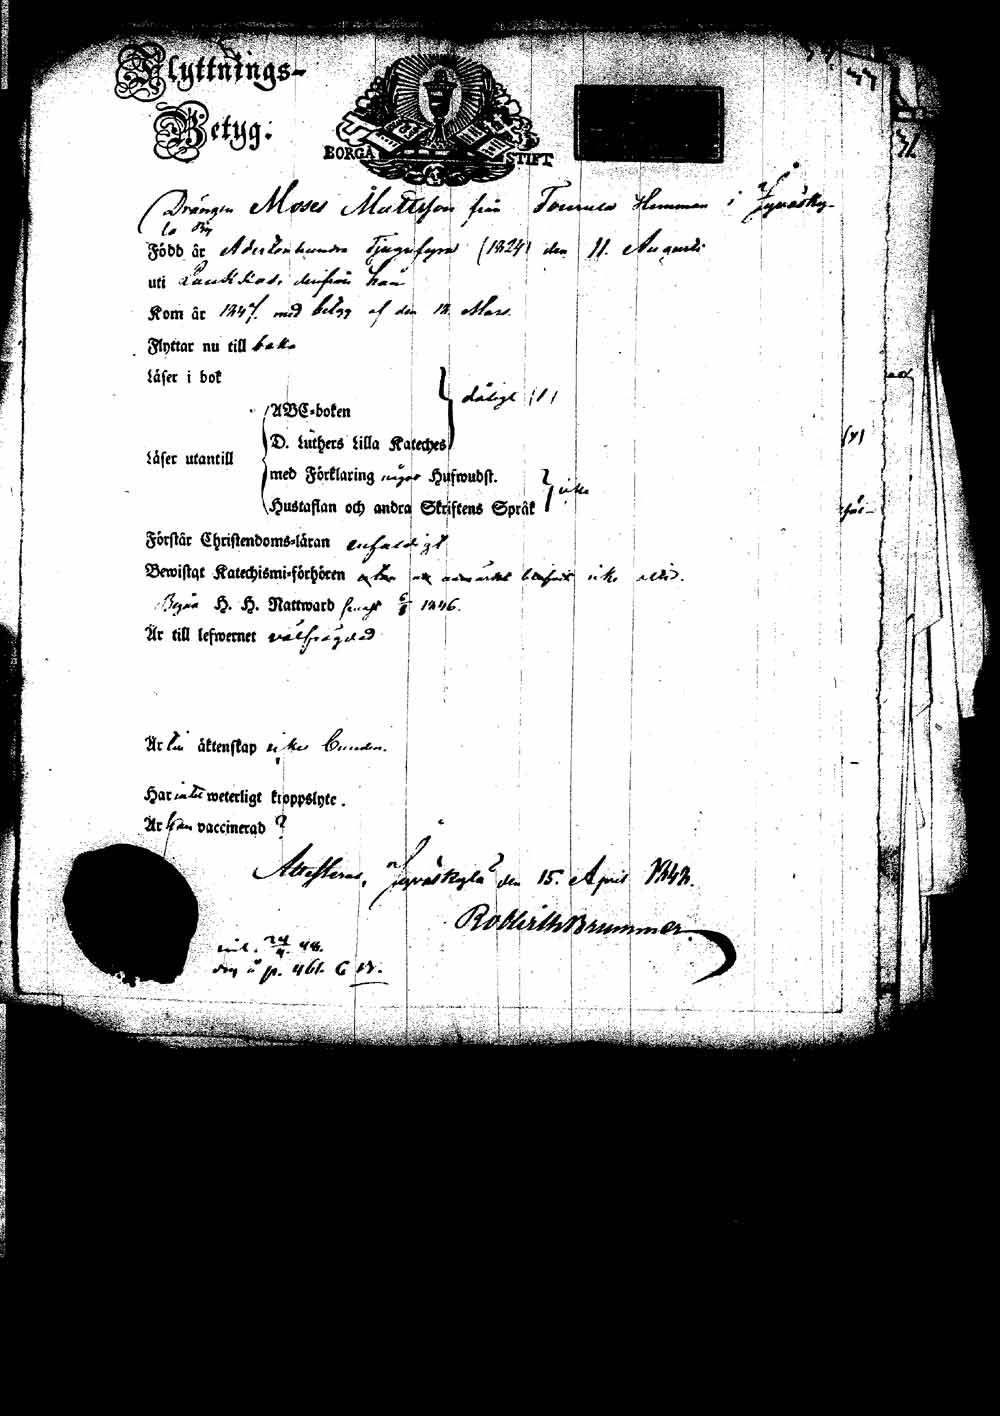 Flyttnings-
Betyg:
BORGÅ STIFT
Drängen Moses Mattsson från Tourula Hemman i Jyväsky-
lä By
Född år Adertonhundra Tjugufyra (1824) den 11. Augusti
uti Laukkas, derifrån han
Kom år 1847. med betyg af den 12. Mars.
Flyttar nu till baka
Läser i bok
dåligt (1)
ABC-boken
D. Luthers Lilla Kateches
Läser utantill
med Förklaring några Hufwudst.
icke
Hustaflan och andra Skriftens Språk
Förstår Christendoms-läran enfaldigt
Bewistat Katechismi-förhören icke
Begår H. H. Nattward senast 6/8 1846.
Är till lefwernet välfrägdad
Är till äktenskap icke bunden.
Har intet weterligt kroppslyte.
Är han vaccinerad?
Attesteras, Jyväskylä den 15. April 1848.
Rob. Brummer.
24/4 48.
p. 461.